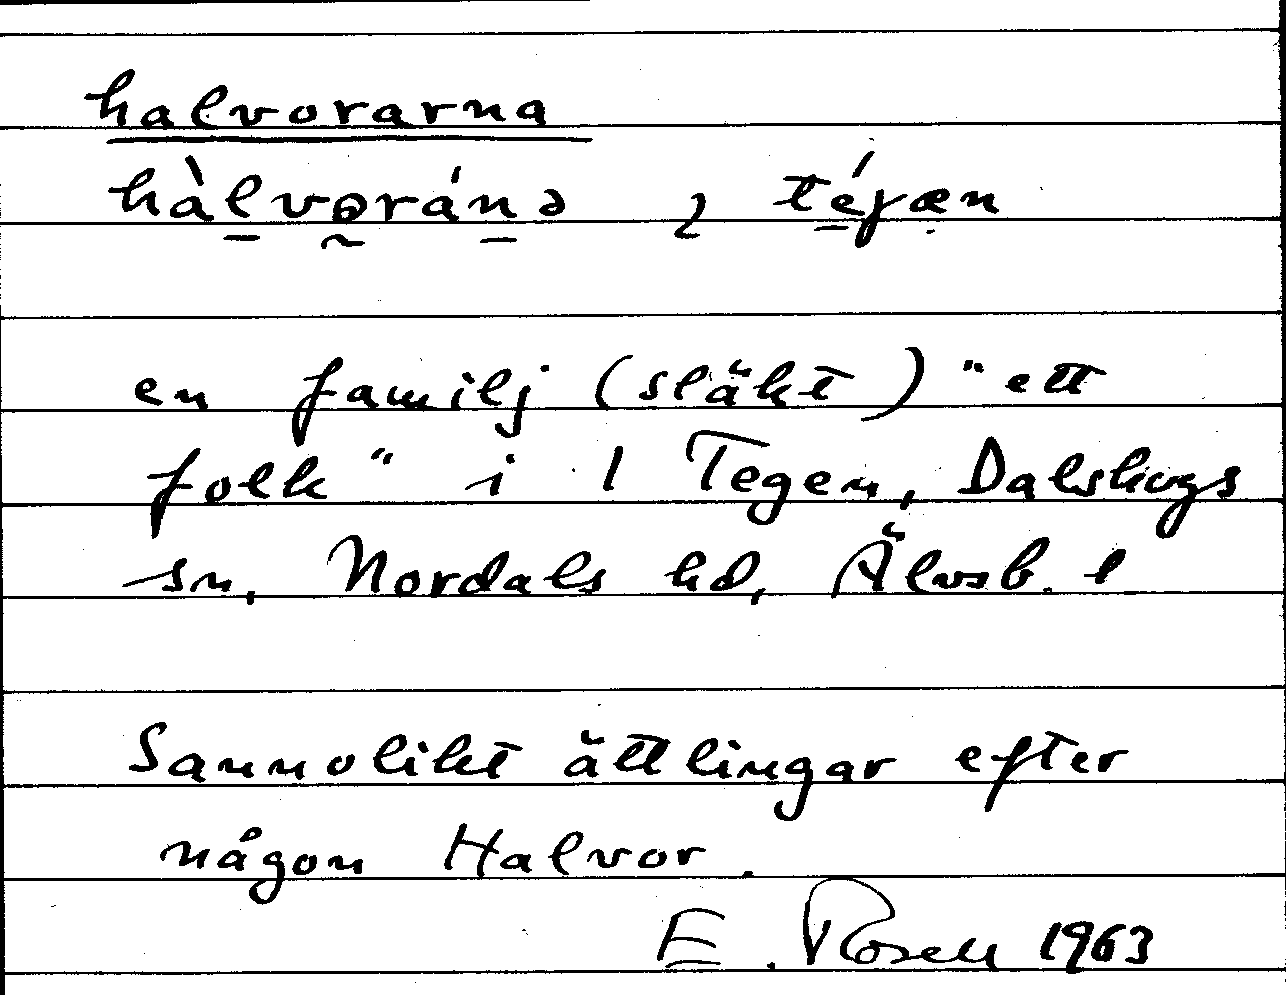 halvorarna
hàlvɵránə ɩ téjæn
en familj (släkt) "ett
folk" i l Tegen, Dalskogs
sn, Nordals hd, Älvsb. l
Sannolikt ättlingar efter
någon Halvor.
E. Rosell 1963